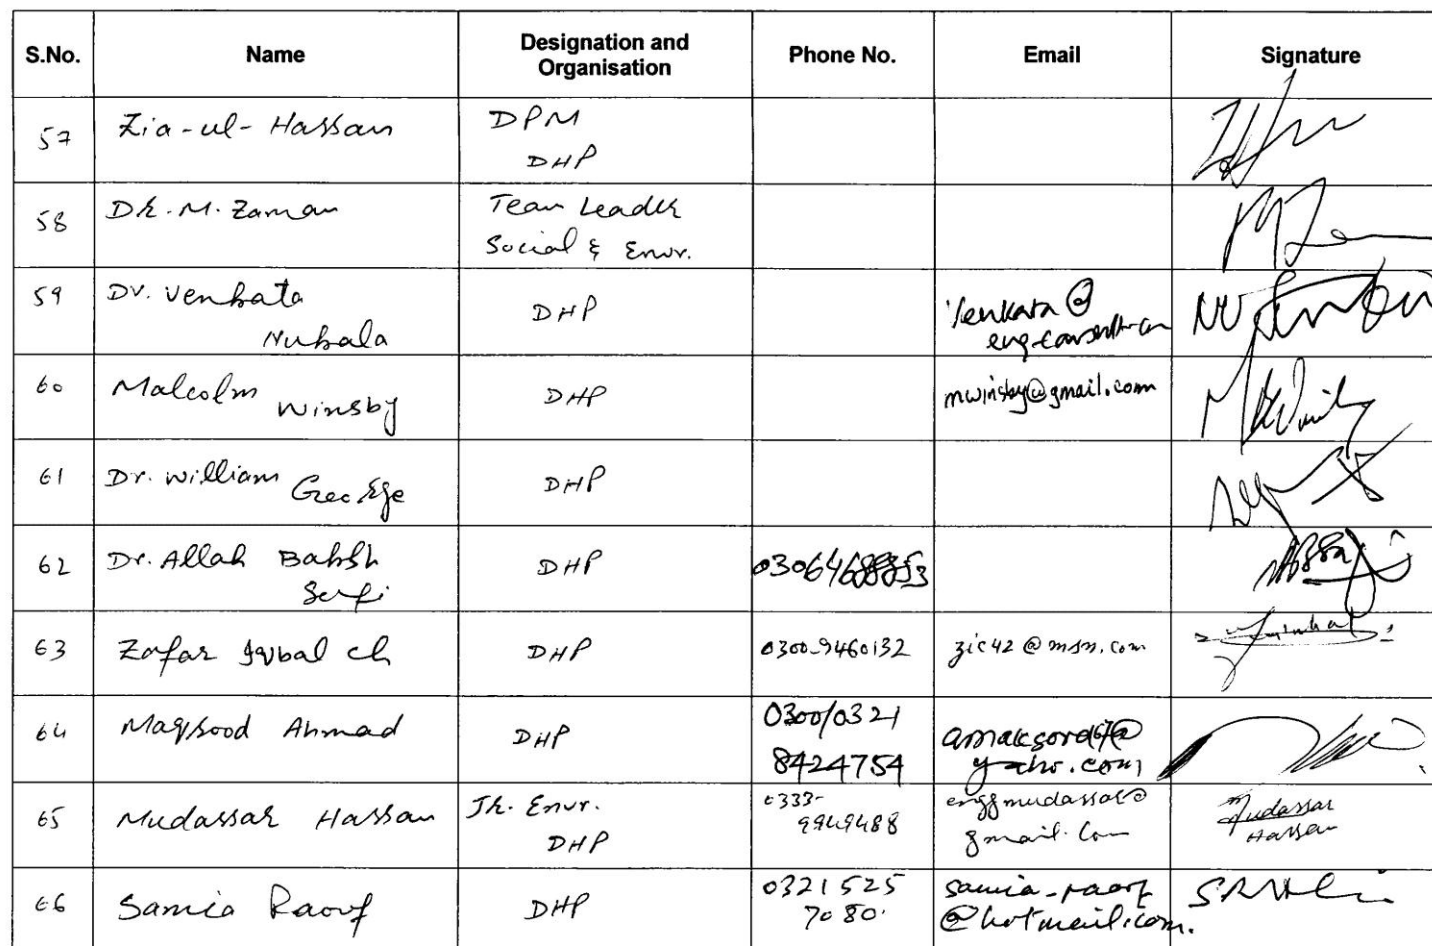 S.No. Name Designation and Organisation Phone No. Email Signature
57 Zia-ul-Hassan DPM
DHP
58 DR. M. Zaman Team Leader
Social & Envr.
59 Dr. Venkata DHP
Nukala
60 Malcolm Winsby DHP mwinsby@gmail.com
61 Dr. William George DHP
62 Dr. Allah Bakhsh DHP
63 Zafar Iqbal ch DHP 0300-9460132 zic42@msn.com
64 Maqsood Ahmad DHP 0300/0321
8424754
65 Mudassar Hassan Jr. Envr. 0333- enggmudassar@ Mudassar
DHP 9949488 gmail.com Hassan
66 Samia Raouf DHP 0321 525 samia-raouf
7080. @hotmail.com.